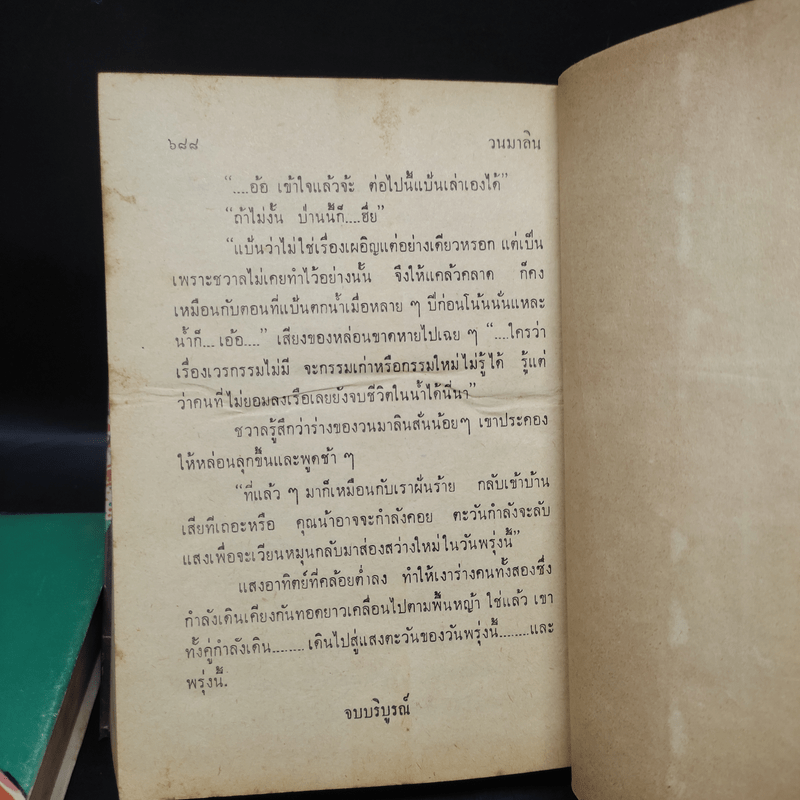 ๖๘๘ วนมาลิน
“....อ้อ เข้าใจแล้วจ้ะ ต่อไปนี้แป้นเล่าเองได้”
“ถ้าไม่งั้น ป่านนี้ก็....ฮึ่ย”
“แป้นว่าไม่ใช่เรื่องเผอิญแต่อย่างเดียวหรอก แต่เป็น
เพราะชวาลไม่เคยทำไว้อย่างนั้น จึงให้แคล้วคลาด ก็คง
เหมือนกับตอนที่แป้นตกน้ำเมื่อหลาย ๆ ปีก่อนโน้นนั่นแหละ
น้ำก็... เอ้อ....” เสียงของหล่อนขาดหายไปเฉย ๆ “....ใครว่า
เรื่องเวรกรรมไม่มี จะกรรมเก่าหรือกรรมใหม่ไม่รู้ได้ รู้แต่
ว่าคนที่ไม่ยอมลงเรือเลยยังจบชีวิตในน้ำได้นี่นา”
ชวาลรู้สึกว่าร่างของวนมาลินสั่นน้อยๆ เขาประคอง
ให้หล่อนลุกขึ้นและพูดช้า ๆ
“ที่แล้ว ๆ มาก็เหมือนกับเราฝันร้าย กลับเข้าบ้าน
เสียทีเถอะหรือ คุณน้าอาจจะกำลังคอย ตะวันกำลังจะลับ
แสงเพื่อจะเวียนหมุนกลับมาส่องสว่างใหม่ในวันพรุ่งนี้”
แสงอาทิตย์ที่คล้อยต่ำลง ทำให้เงาร่างคนทั้งสองซึ่ง
กำลังเดินเคียงกันทอดยาวเคลื่อนไปตามพื้นหญ้า ใช่แล้ว เขา
ทั้งคู่กำลังเดิน........ เดินไปสู่แสงตะวันของวันพรุ่งนี้........และ
พรุ่งนี้.
จบบริบูรณ์